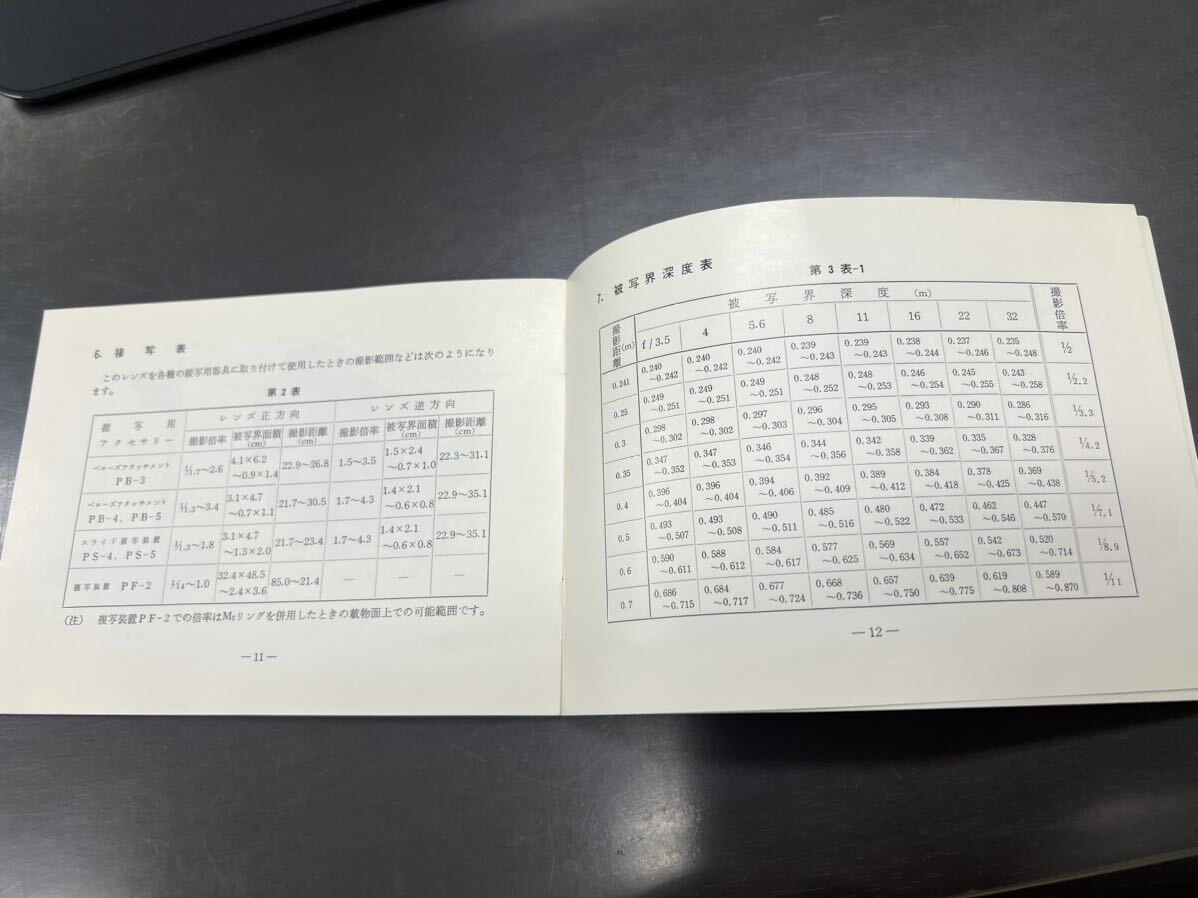 6. 接写表
このレンズを各種の接写用器具に取り付けて使用したときの撮影範囲などは次のようになり
ます。
第2表
接写用
アクセサリー
レンズ正方向
レンズ逆方向
撮影倍率 被写界面積(cm) 撮影距離(cm) 撮影倍率 被写界面積(cm) 撮影距離(cm)
ベローズアタッチメント PB-3 1/1.7〜2.6 4.1×6.2〜0.9×1.4 22.9〜26.8 1.5〜3.5 1.5×2.4〜0.7×1.0 22.3〜31.1
ベローズアタッチメント PB-4, PB-5 1/1.3〜3.4 3.1×4.7〜0.7×1.1 21.7〜30.5 1.7〜4.3 1.4×2.1〜0.6×0.8 22.9〜35.1
スライド複写装置 PS-4, PS-5 1/1.3〜1.8 3.1×4.7〜1.3×2.0 21.7〜23.4 1.7〜4.3 1.4×2.1〜0.6×0.8 22.9〜35.1
複写装置 PF-2 1/14〜1.0 32.4×48.5〜2.4×3.6 85.0〜21.4 — — —
(注) 複写装置PF-2での倍率はM2リングを併用したときの載物面上での可能範囲です。
—11—
7. 被写界深度表
第3表-1
撮影距離(m)
被写界深度 (m)
撮影倍率
f/3.5 4 5.6 8 11 16 22 32
0.241 0.240〜0.242 0.240〜0.242 0.240〜0.242 0.239〜0.243 0.239〜0.243 0.238〜0.244 0.237〜0.246 0.235〜0.248 1/2
0.25 0.249〜0.251 0.249〜0.251 0.249〜0.251 0.248〜0.252 0.248〜0.253 0.246〜0.254 0.245〜0.255 0.243〜0.258 1/2.2
0.3 0.298〜0.302 0.298〜0.302 0.297〜0.303 0.296〜0.304 0.295〜0.305 0.293〜0.308 0.290〜0.311 0.286〜0.316 1/3.3
0.35 0.347〜0.352 0.347〜0.353 0.346〜0.354 0.344〜0.356 0.342〜0.358 0.339〜0.362 0.335〜0.367 0.328〜0.376 1/4.2
0.4 0.396〜0.404 0.396〜0.404 0.394〜0.406 0.392〜0.409 0.389〜0.412 0.384〜0.418 0.378〜0.425 0.369〜0.438 1/5.2
0.5 0.493〜0.507 0.493〜0.508 0.490〜0.511 0.485〜0.516 0.480〜0.522 0.472〜0.533 0.462〜0.546 0.447〜0.570 1/7.1
0.6 0.590〜0.611 0.588〜0.612 0.584〜0.617 0.577〜0.625 0.569〜0.634 0.557〜0.652 0.542〜0.673 0.520〜0.714 1/8.9
0.7 0.686〜0.715 0.684〜0.717 0.677〜0.724 0.668〜0.736 0.657〜0.750 0.639〜0.775 0.619〜0.808 0.589〜0.870 1/11
—12—